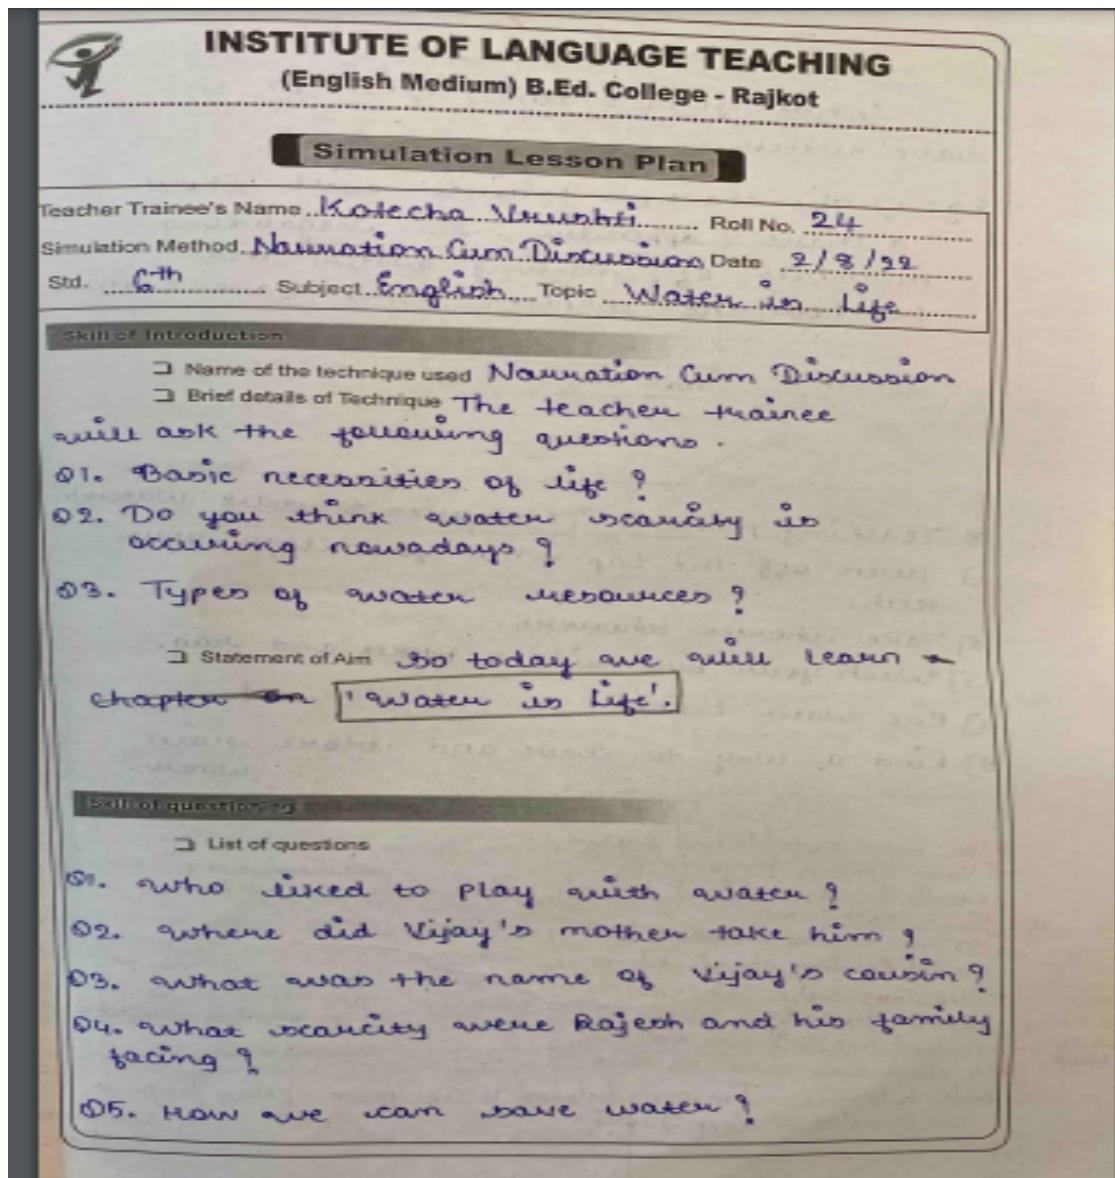 INSTITUTE OF LANGUAGE TEACHING
(English Medium) B.Ed. College - Rajkot
Simulation Lesson Plan
Teacher Trainee's Name Kotecha Vrushti Roll No. 24
Simulation Method Narration Cum Discussion Date 2/8/22
Std. 6th Subject English Topic Water is Life
Skill of Introduction
Name of the technique used Narration Cum Discussion
Brief details of Technique The teacher trainee
will ask the following questions.
Q1. Basic necessities of life ?
Q2. Do you think water scarcity is
occuring nowadays ?
Q3. Types of water resources ?
Statement of Aim So today we will learn
chapter on 'Water is Life'.
Skill of questioning
List of questions
Q1. Who liked to play with water ?
Q2. Where did Vijay's mother take him ?
Q3. What was the name of Vijay's cousin ?
Q4. What scarcity were Rajesh and his family
facing ?
Q5. How we can save water ?